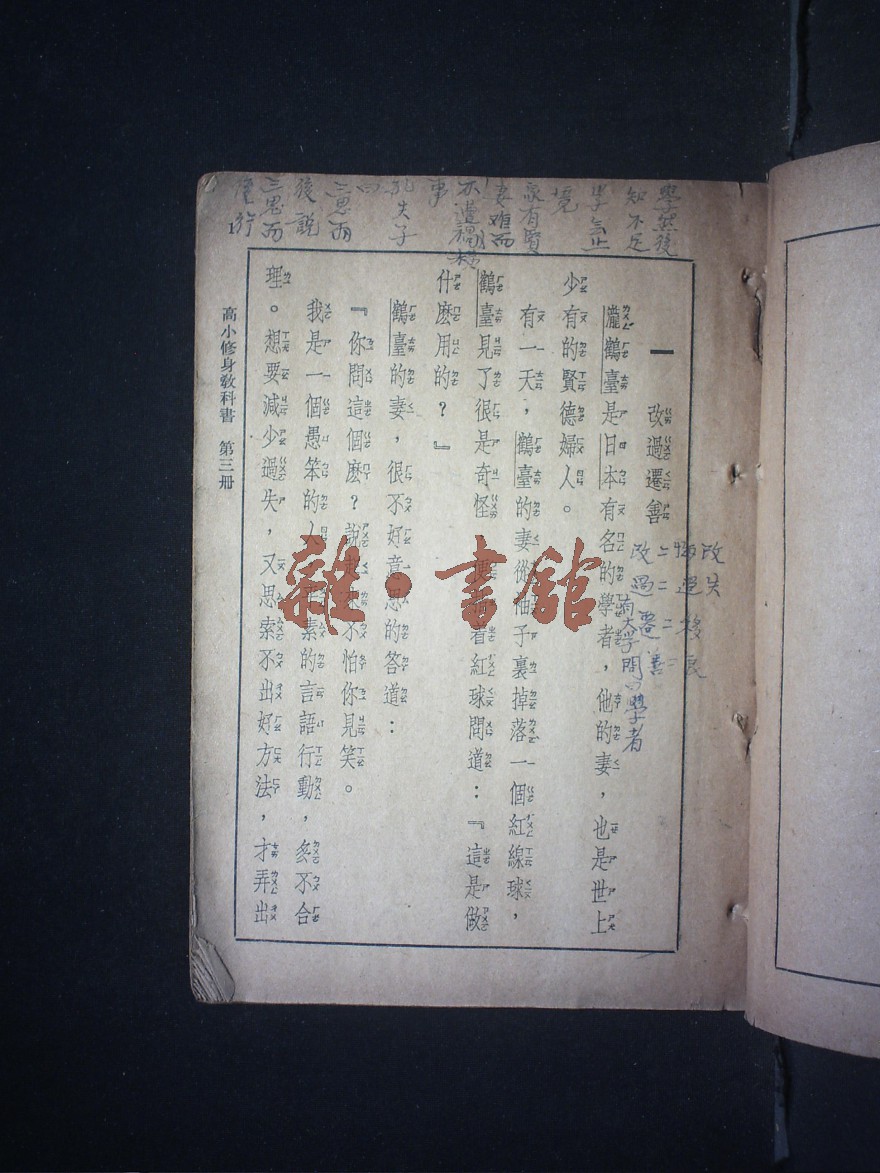 學然後
知不足
學無止
境
家有賢
妻
事
孔夫子
曰
三思而
後說
三思而
後行
一 改過遷善
瀧鶴臺是日本有名的學者，他的妻，也是世上
少有的賢德婦人。
有一天，鶴臺的妻從袖子裏掉落一個紅線球，
鶴臺見了很是奇怪，便指着紅球問道：『這是做
什麽用的？』
鶴臺的妻，很不好意思的答道：
『你問這個麽？說起來不怕你見笑。
我是一個愚笨的人，平素的言語行動，多不合
理。想要減少過失，又思索不出好方法，才弄出
高小修身教科書 第三册
改＝改
過＝過失
有大學問ㄉ學者
雜·書館